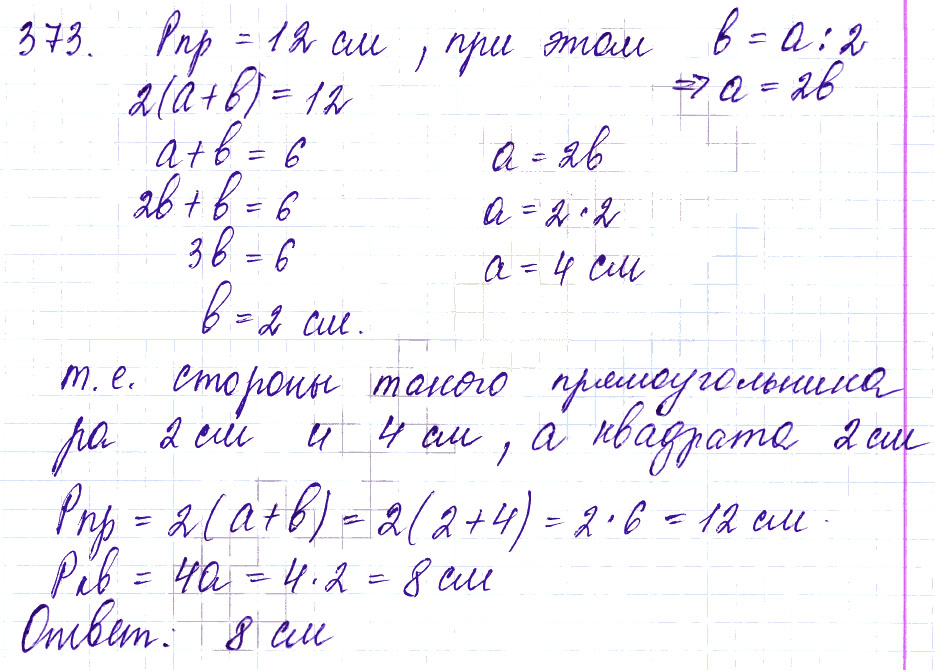 373. Pпр = 12 см, при этом в = а : 2
2(а+в) = 12 ⇒ а = 2в
а+в = 6 а = 2в
2в + в = 6 а = 2·2
3в = 6 а = 4 см
в = 2 см.
т.е. стороны такого прямоугольника
ра 2 см и 4 см, а квадрата 2 см
Pпр = 2(а+в) = 2(2+4) = 2·6 = 12 см.
Pкв = 4а = 4·2 = 8 см
Ответ: 8 см